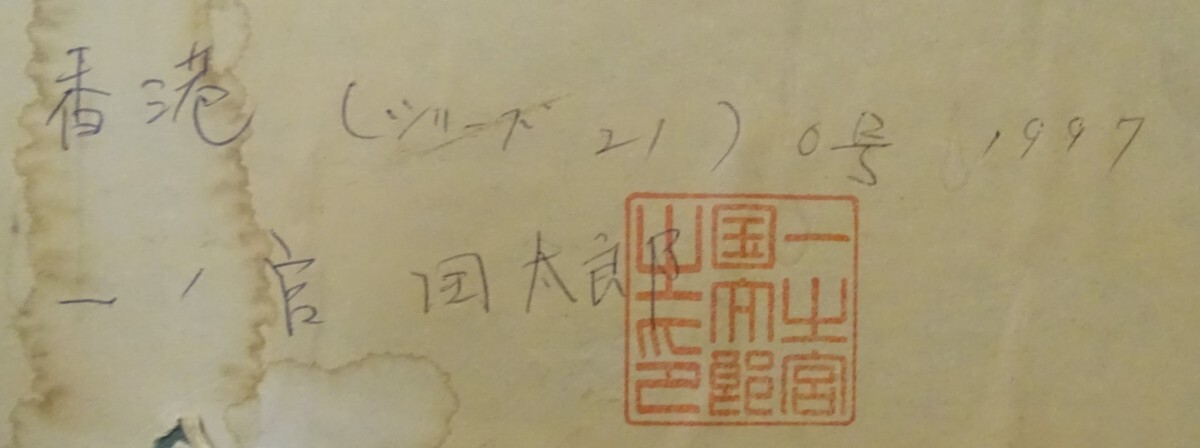 香港 (シリーズ 21) 0号 1997
一ノ宮 国太郎
一之宮
国太郎